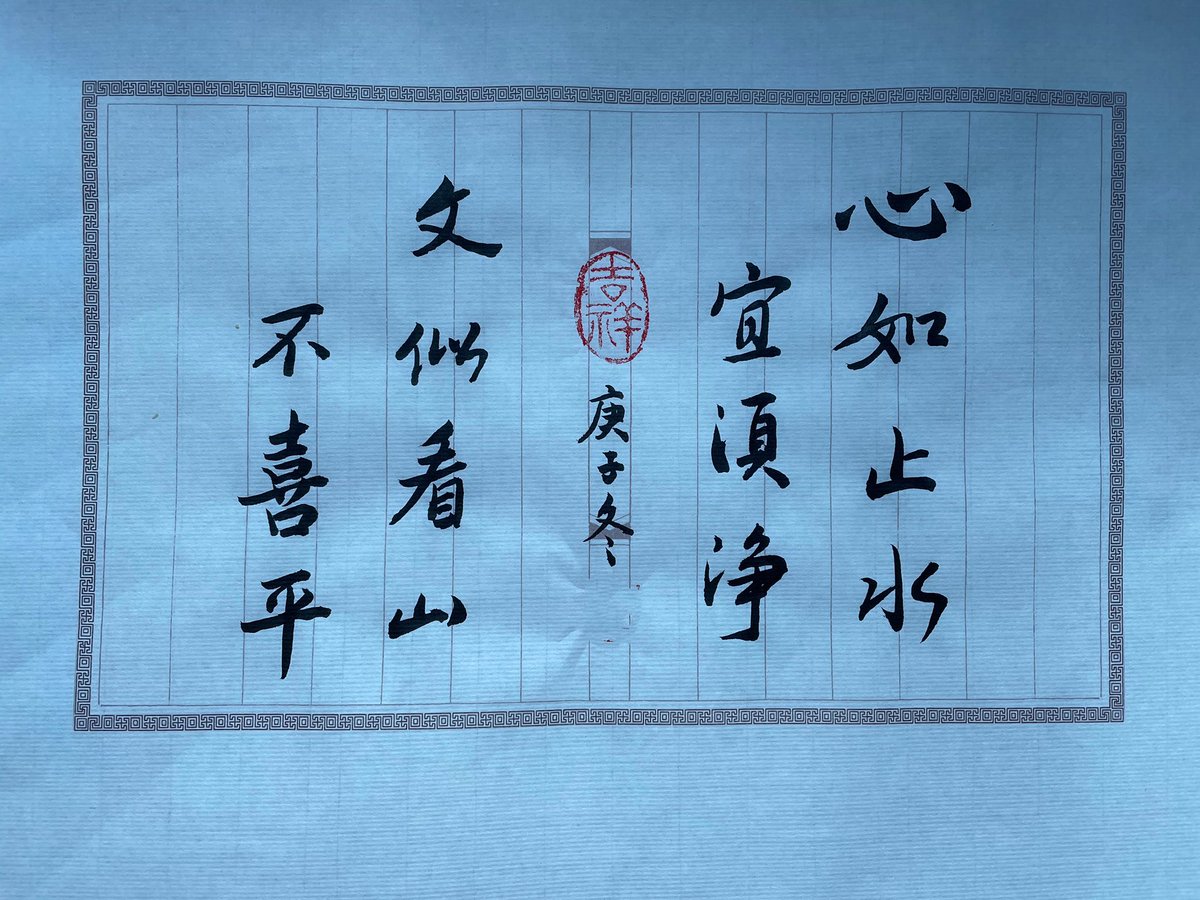 心如止水
宜须净
吉祥
庚子冬
文似看山
不喜平